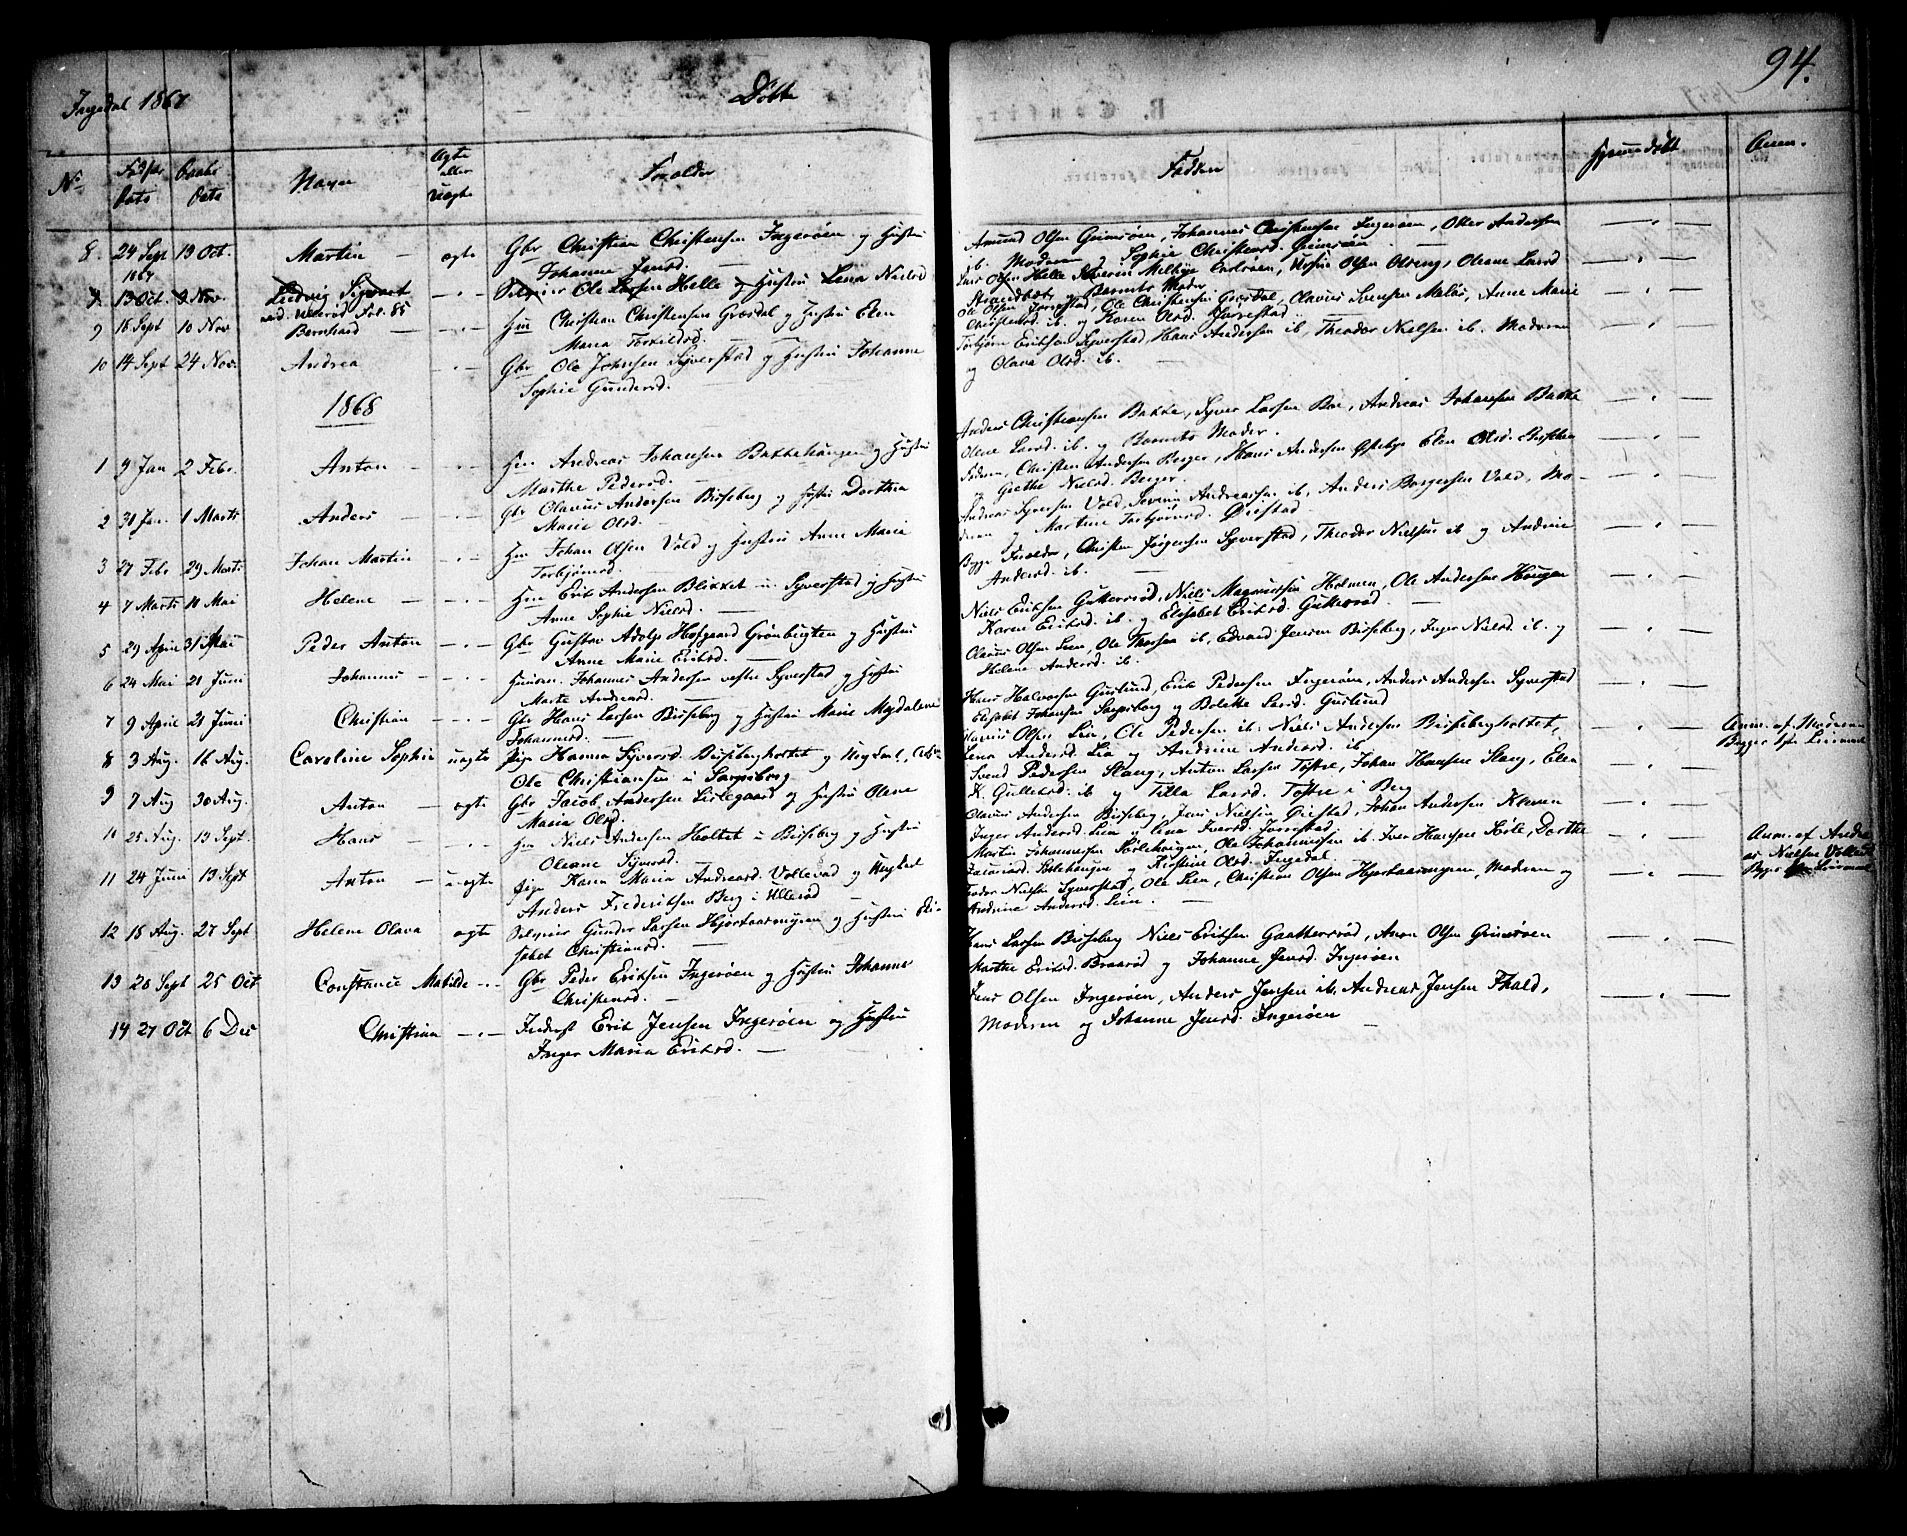 94.
Ingedal 1867 Døbte
No Fødsels Dato Daabs Dato Navn Ægte eller Uægte Forældre Faddere Hjemmedøbt Anm.
8. 24 Sept 13 Oct. Martin — ægte Gbr Christian Christensen Ingerøen og Hustru
Johanne Jensd.
Amund Olsen Grimsøen, Johannes Christensen Ingerøen, Otter Andersen
ib. Moderen, Sophie Christensd. Grimsøen
1867
13 Oct. 3 Nov. Ludvig Sigvart Selveier Ole Larsen Helle og Hustru Lena Nielsd
ved Ullerød Fol. 85
Lars Olsen Helle, Olsen Olseng, Oleane Larsd
Barnets Moder
9 18 Sept 10 Nov Bernhard Hm Christian Christensen Græsdal og Hustru Elen
Maria Torkildsd.
Ole Olsen Jorrestad, Ole Christensen Græsdal, Olavus Svensen Anne Marie
Christensd. ib. og Karen Olsd. Jorrestad
10 14 Sept 24 Nov. Andrea Gbr Ole Johnsen Syverstad og Hustru Johanne
Sophie Gundersd.
Torbjørn Eriksen Syverstad, Hans Andersen ib, Theodor Nielsen ib. Moderen
og Olava Olsd. ib.
1868
1 9 Jan 2 Febr. Anton Hm Andreas Johansen Bakkehaugen og Hustru
Marthe Pedersd.
Anders Christiansen Bakke, Syver Larsen Boe, Andreas Johansen Bakke
Olene Larsd. ib. og Barnets Moder.
2 31 Jan. 1 Marts Anders Gbr Olavus Andersen Buseberg og Hustru Dorthea
Marie Olsd.
Faderen, Christen Andersen Berger, Hans Andersen Elen Olsd.
og Grethe Nielsd. Berger.
3 27 Febr. 29 Marts Johan Martin Hm Johan Olsen Vold og Hustru Anne Marie
Torbjørnsd.
Andreas Syversen Vold, Severin Andreassen ib., Anders Borgersen Vold, Mo-
deren og Martine Torbjørnsd. Øiestad
4 7 Marts 10 Mai Helene Hm Erik Andersen Blikket u. Syverstad og Hustru
Anne Sophie Nielsd.
Begge Forældre, Christen Jørgensen Syverstad, Theodor Nielsen ib og Andrine
Andersd. ib.
5 29 April 31 Mai Peder Anton Gbr Gustav Adolf Hofgaard Grønbugten og Hustru
Anne Marie Eriksd.
Niels Eriksen Guttersrød, Niels Magnussen Holmen, Ole Andersen Haugen
Karen Eriksd. ib. og Elisabet Eriksd. Guttersrød.
6 24 Mai 21 Juni Johannes Johannes Andersen Syverstad og Hustru
Marte Andreasd.
Olavus Olsen Lien, Ole Thorsen ib, Edvard Jensen Buseberg, Inger Nielsd ib. og
Helene Andersd. ib.
7 9 April 21 Juni Christian Gbr Hans Larsen Buseberg og Hustru Marie Magdalene
Johannesd.
Hans Halvorsen Guslund, Erik Pedersen Ingerøen, Anders Andersen Syverstad
Elisabet Johansen Sarpsborg og Bolette Larsd. Guslund
8 3 Aug. 16 Aug. Caroline Sophie uægte Pige Hanna Syversd. Busebergholtet og Ungkarl, Arb.
Ole Christiansen i Sarpsborg
Olavus Olsen Lien, Ole Pedersen ib. Niels Andersen Busebergholtet,
Lena Andersd. Lia og Andrine Andersd. ib.
Anm. af Moderen
Begge
9 7 Aug 30 Aug. Anton — ægte Gbr Jacob Andersen Lislegaard og Hustru Olene
Maria Olsd
Svend Pedersen Slang, Anton Larsen Tøstre, Johan Hansen Slang, Elen
K. Gullesd. ib og Tilla Larsd. Tøstre i Berg
10 25 Aug. 13 Sept. Hans Hm Niels Andersen Holtet u Buseberg og Hustru
Oleane Syversd.
Olavus Andersen Buseberg, Jens Nielsen Øiestad, Johan Andersen
Inger Andersd. Lia og Lena Iversd. Jorrestad
11 24 Juni 13 Sept Anton — uægte Pige Karen Maria Andreasd. Vollevad og Ungkarl
Anders Frederiksen Berg i Ullerød
Martin Johannessen Sølehaugen, Ole Johannessen ib. Iver Hansen Dorthe
Sølehaugen og Kirstine Olsd. Ingedal
Anm. af Andre-
as Nielsen Volle
Begge
12 18 Aug. 27 Sept Helene Olava ægte Selveier Gunder Larsen Hjortaasmyren og Hustru Eli-
sabet Christiansd.
Theodor Nielsen Syverstad, Ole Lien, Christian Olsen Hjortaasmyren, Moderen og
Andrine Andersd. Lien.
13 20 Sept 25 Oct Constance Matilde Gbr Peder Eriksen Ingerøen og Hustru Johanne
Christensd.
Hans Larsen Buseberg Niels Eriksen Guttersrød, Anon Olsen Grimsøen
Marthe Eriksd. Braarød og Johanne Jensd. Ingerøen
14 27 Oct 6 Dec Christian Inderst Erik Jensen Ingerøen og Hustru
Inger Maria Eriksd.
Jens Olsen Ingerøen, Anders Jensen ib, Andreas Jensen
Moderen og Johanne Jensd. Ingerøen